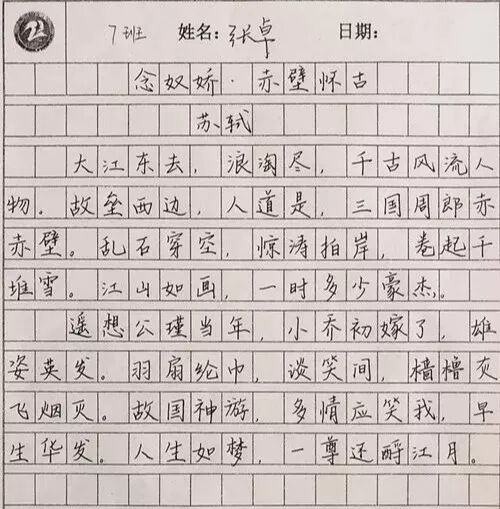 7班 姓名：张卓 日期：
念奴娇·赤壁怀古
苏轼
大江东去，浪淘尽，千古风流人
物。故垒西边，人道是，三国周郎赤
赤壁。乱石穿空，惊涛拍岸，卷起千
堆雪。江山如画，一时多少豪杰。
遥想公瑾当年，小乔初嫁了，雄
姿英发。羽扇纶巾，谈笑间，樯橹灰
飞烟灭。故国神游，多情应笑我，早
生华发。人生如梦，一尊还酹江月。